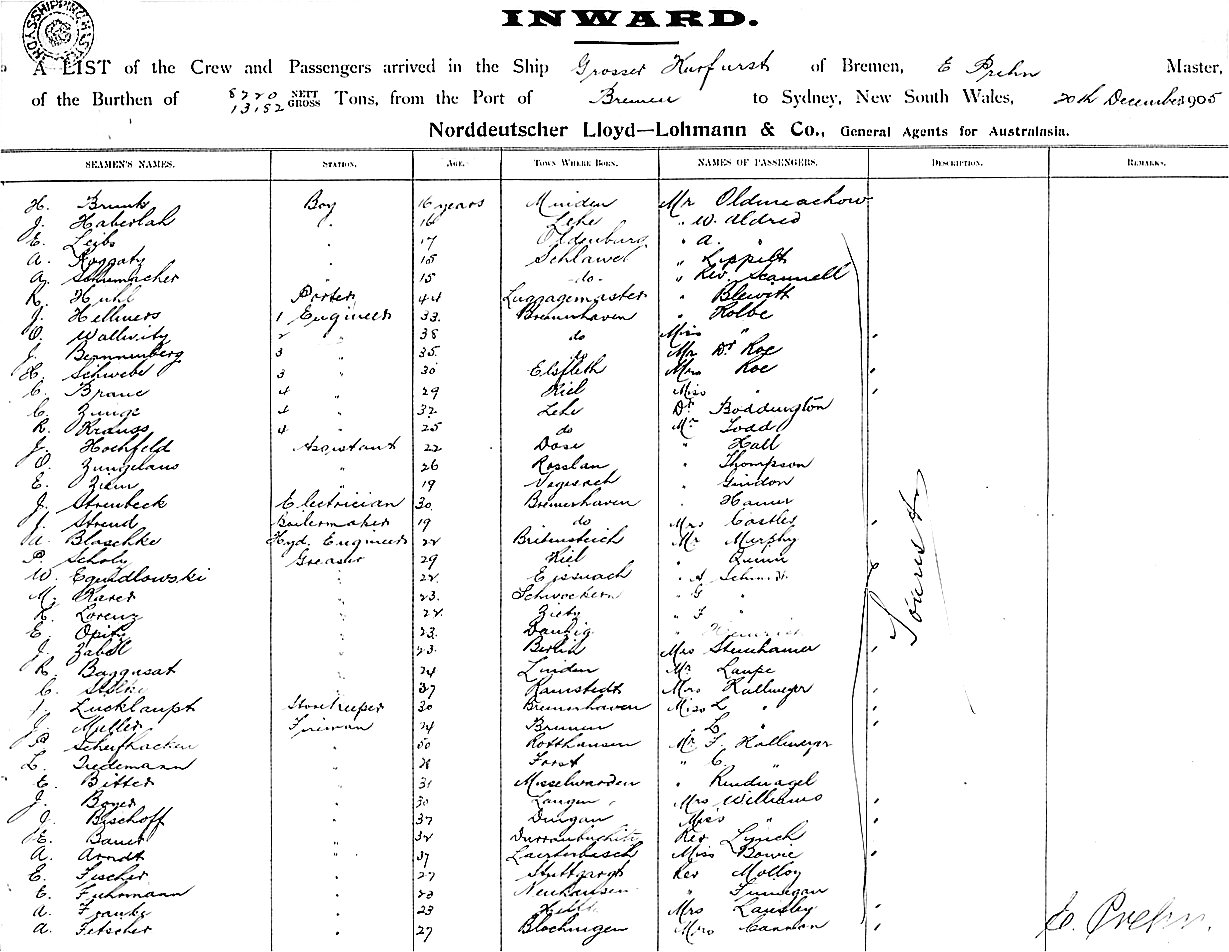 INWARD.
A LIST of the Crew and Passengers arrived in the Ship Grosser Kurfurst of Bremen, E Prehn Master,
of the Burthen of 8220 NETT 13182 GROSS Tons, from the Port of Bremen to Sydney, New South Wales, 20th December 1905
Norddeutscher Lloyd—Lohmann & Co., General Agents for Australasia.
SEAMEN'S NAMES. STATION. AGE. TOWN WHERE BORN. NAMES OF PASSENGERS. DESCRIPTION. REMARKS.
H. Brunk Boy 16 years Minden Mr Oldmeachow
J. Haberlah " 16 Lehe " W. Aldred
E. Leibs " 17 Oldenburg " A. "
A. Roggatz " 15 Schlawe " Lippilt
A. Schumacher " 15 do " Rev. Scannell
R. Huhl Porter 44 Luggagemaster " Blewitt
J. Hellmers 1 Engineer 33 Bremerhaven " Kolbe
O. Wallwitz 2 " 38 do Miss "
J. Bannenberg 3 " 35 do Mr Dr Roe
H. Schwebe 3 " 30 Elsfleth Mrs Roe
C. Braue 4 " 29 Kiel Miss "
C. Zunge 4 " 32 Lehe Dr Boddington
R. Krauss 4 " 25 do Mr Todd
J. Hochfeld Assistant 22 Dose " Hall
O. Zungclaus " 26 Rosslau " Thompson
E. Ziem " 19 Vegesach " Gindon
J. Strenbeck Electrician 30 Bremerhaven " Hamer
J. Strend Boilermaker 19 do Mrs Castles
A. Blaschke Hyd. Engineer 22 Mr Murphy
P. Scholz Greaser 29 Kiel " Quinn
W. Egundlowski " 22 Eissnach " A Schmidt
M. Karer " 23 " G "
R. Lorenz " 22 Zietz " F "
E. Opitz " 23 Danzig "
J. Zabel " 23 Berlin Mrs Steinhamer
R. Baggusat " 24 Linden Mr Laupe
C. " 37 Ramstedt Mrs Kallmeyer
Lucklaupt Storekeeper 30 Bremerhaven Miss L "
J. Muller Fireman 24 Bremen " L "
P. Scheifhacken " 50 Rotthausen Mr F. Hallmeyer
L. Tiedemann " Forst " C. "
E. Bitter " 31 Misselwarden " Rindnagel
J. Boyer " 30 Langen Mrs Williams
J. Bischoff " 37 Dungan Miss "
E. Bauer " 32 Rev Lynch
A. Arndt " 37 Miss Bowie
E. Fischer " 27 Stuttgart Rev Molloy
E. Fuhrmann " 23 Neuhausen " Finnegan
A. Franke " 23 Mrs Lansley
A. Fetscher " 27 Blochingen Mrs Cannon
Tourists
E. Prehn.